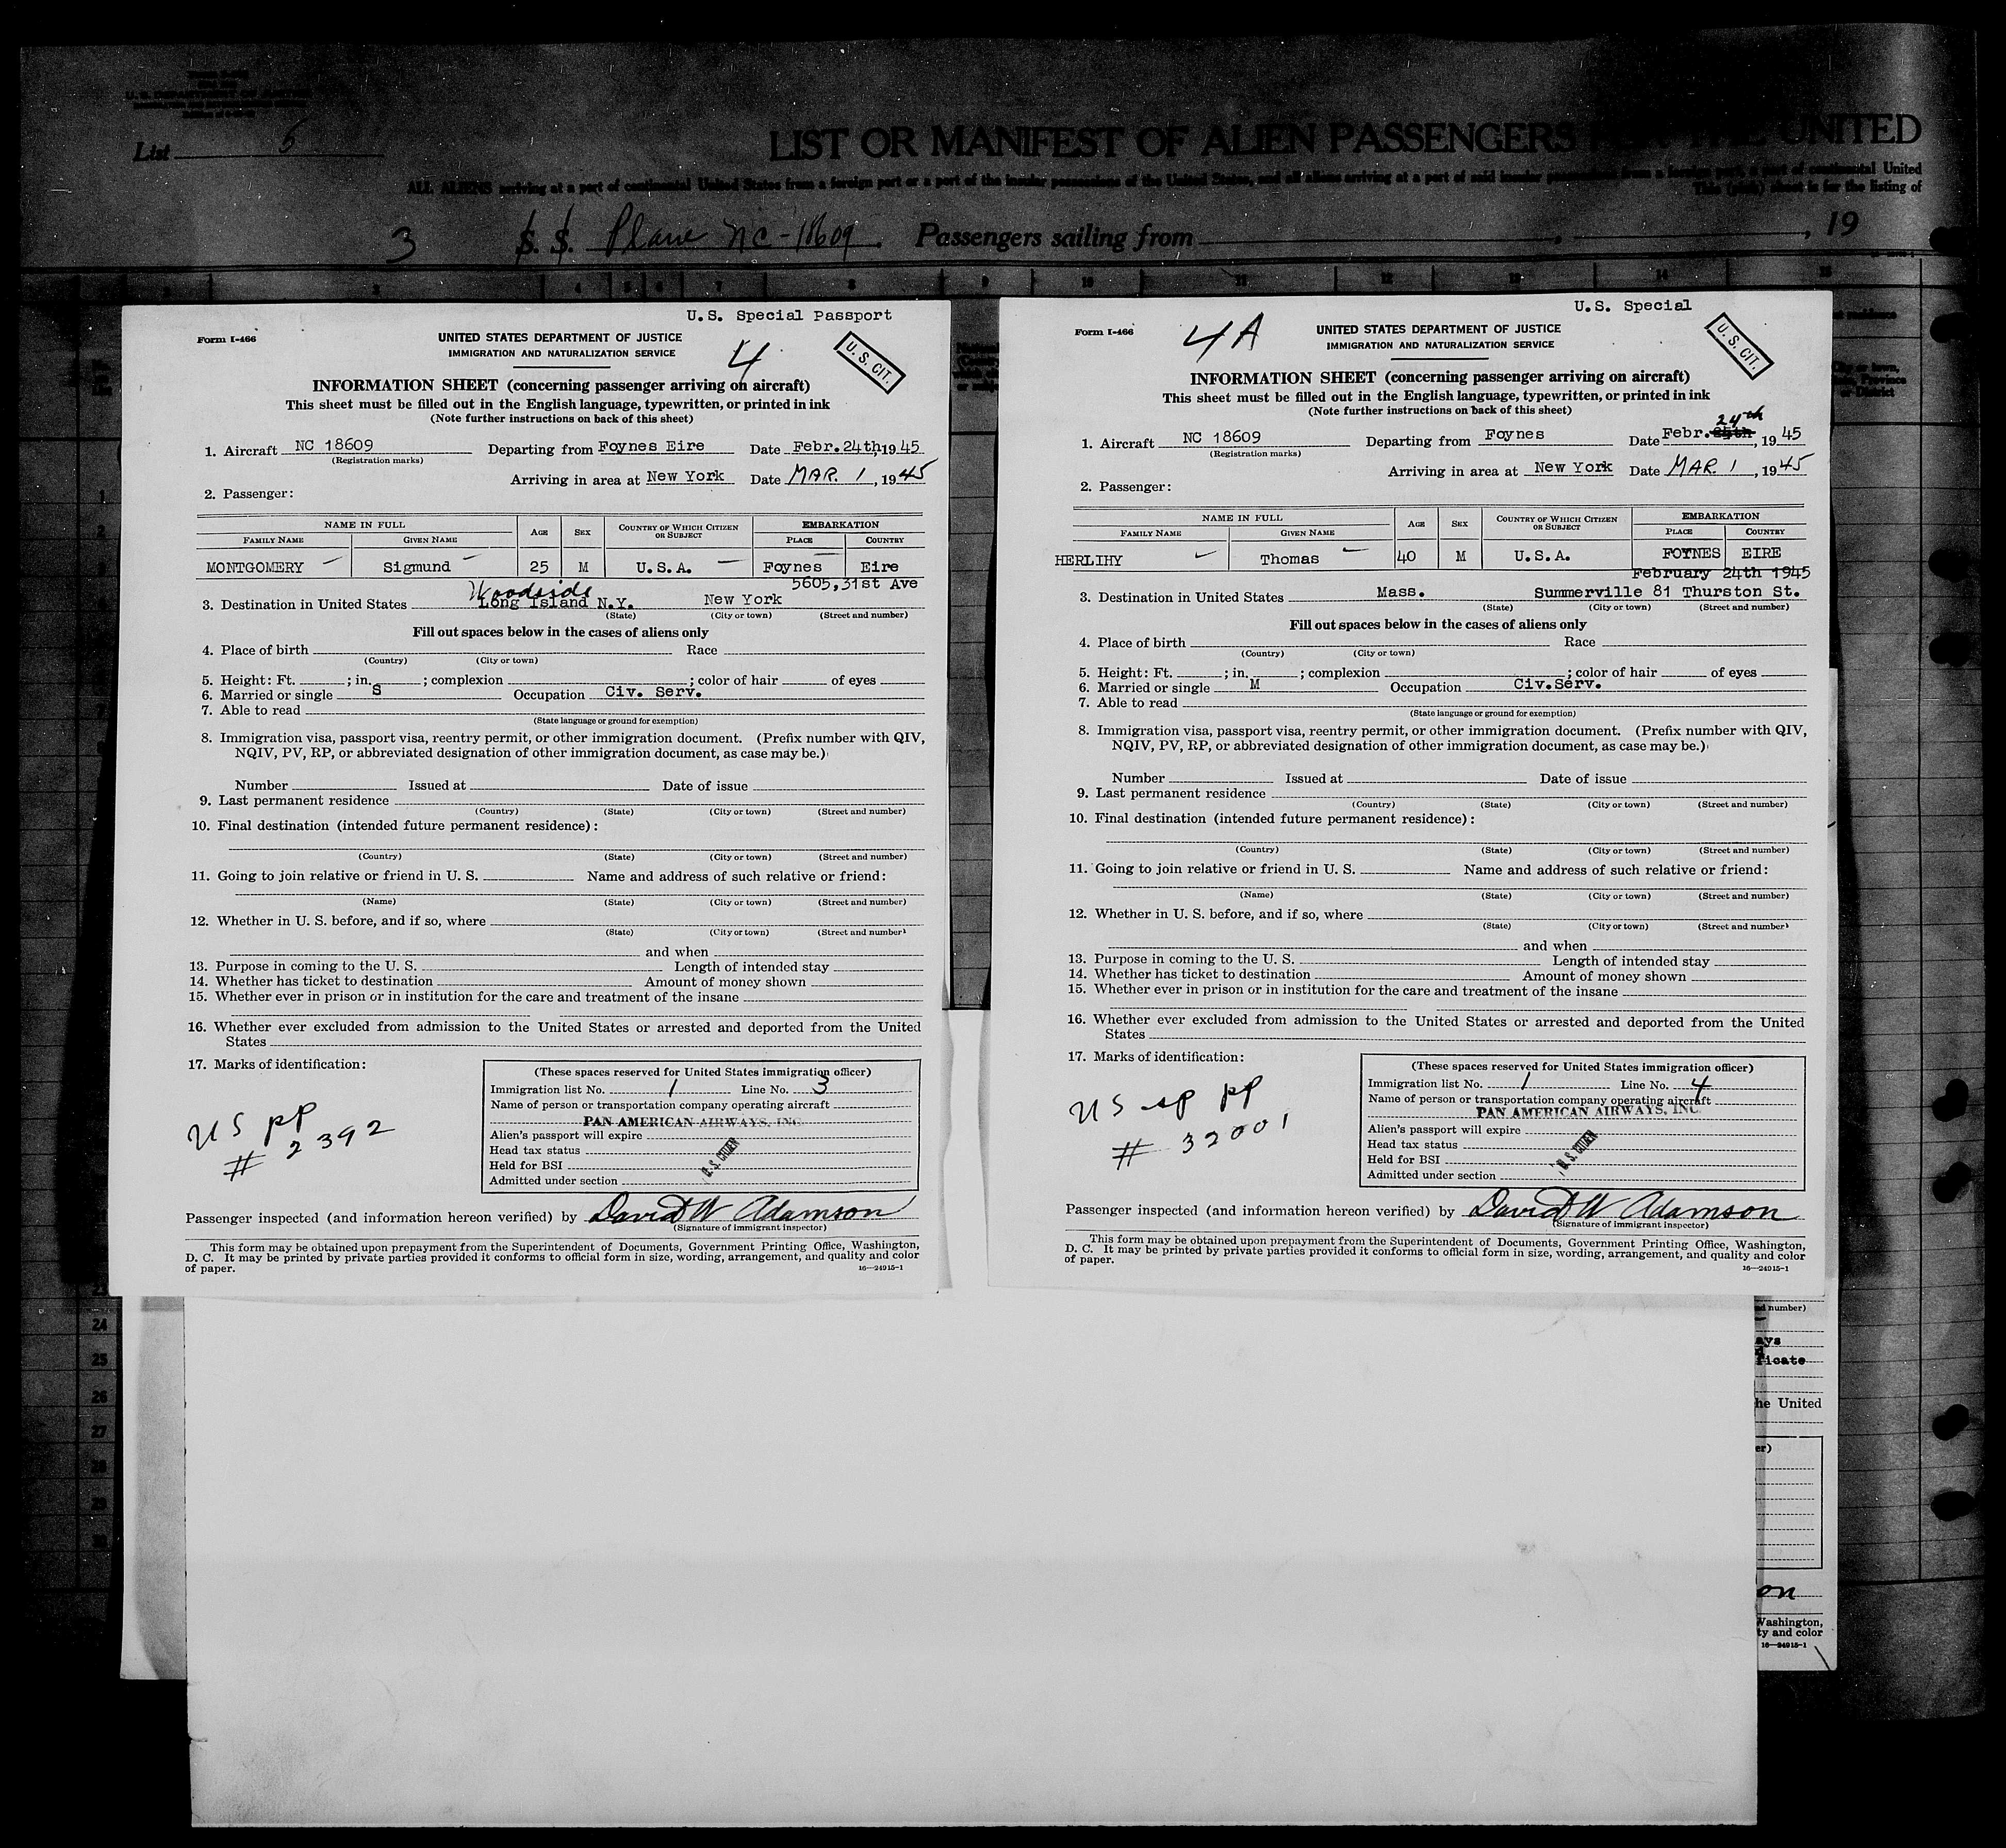 List 5
LIST OR MANIFEST OF ALIEN PASSENGERS FOR THE UNITED
ALL ALIENS arriving at a port of continental United States from a foreign port or a port of the insular possessions of the United States, and all aliens arriving at a port of said insular possessions from a foreign port, a port of continental United
This (pink) sheet is for the listing of
3 S. S. Plane NC-18609. Passengers sailing from , , 19
U.S. Special Passport
Form I-466
UNITED STATES DEPARTMENT OF JUSTICE
IMMIGRATION AND NATURALIZATION SERVICE
4
U. S. CIT.
INFORMATION SHEET (concerning passenger arriving on aircraft)
This sheet must be filled out in the English language, typewritten, or printed in ink
(Note further instructions on back of this sheet)
1. Aircraft NC 18609 Departing from Foynes Eire Date Febr. 24th 1945
(Registration marks)
Arriving in area at New York Date MAR. 1, 1945
2. Passenger:
NAME IN FULL AGE SEX COUNTRY OF WHICH CITIZEN OR SUBJECT EMBARKATION
FAMILY NAME GIVEN NAME PLACE COUNTRY
MONTGOMERY Sigmund 25 M U.S.A. Foynes Eire
5605,31st Ave
Woodside
3. Destination in United States Long Island N.Y. New York
(State) (City or town) (Street and number)
Fill out spaces below in the cases of aliens only
4. Place of birth Race
(Country) (City or town)
5. Height: Ft. ; in. ; complexion ; color of hair of eyes
6. Married or single S Occupation Civ. Serv.
7. Able to read
(State language or ground for exemption)
8. Immigration visa, passport visa, reentry permit, or other immigration document. (Prefix number with QIV,
NQIV, PV, RP, or abbreviated designation of other immigration document, as case may be.)
Number Issued at Date of issue
9. Last permanent residence
(Country) (State) (City or town) (Street and number)
10. Final destination (intended future permanent residence):
(Country) (State) (City or town) (Street and number)
11. Going to join relative or friend in U. S. Name and address of such relative or friend:
(Name) (State) (City or town) (Street and number)
12. Whether in U. S. before, and if so, where
(State) (City or town) (Street and number)
and when
13. Purpose in coming to the U. S. Length of intended stay
14. Whether has ticket to destination Amount of money shown
15. Whether ever in prison or in institution for the care and treatment of the insane
16. Whether ever excluded from admission to the United States or arrested and deported from the United
States
17. Marks of identification:
US pp
# 2392
(These spaces reserved for United States immigration officer)
Immigration list No. 1 Line No. 3
Name of person or transportation company operating aircraft
PAN AMERICAN AIRWAYS, INC.
Alien's passport will expire
Head tax status
Held for BSI
Admitted under section
U. S. CITIZEN
Passenger inspected (and information hereon verified) by David W Adamson
(Signature of immigrant inspector)
This form may be obtained upon prepayment from the Superintendent of Documents, Government Printing Office, Washington,
D. C. It may be printed by private parties provided it conforms to official form in size, wording, arrangement, and quality and color
of paper.
16—24915-1
U.S. Special
Form I-466
4A
UNITED STATES DEPARTMENT OF JUSTICE
IMMIGRATION AND NATURALIZATION SERVICE
U. S. CIT.
INFORMATION SHEET (concerning passenger arriving on aircraft)
This sheet must be filled out in the English language, typewritten, or printed in ink
(Note further instructions on back of this sheet)
24th
1. Aircraft NC 18609 Departing from Foynes Date Febr. 25th, 1945
(Registration marks)
Arriving in area at New York Date MAR. 1, 1945
2. Passenger:
NAME IN FULL AGE SEX COUNTRY OF WHICH CITIZEN OR SUBJECT EMBARKATION
FAMILY NAME GIVEN NAME PLACE COUNTRY
HERLIHY Thomas 40 M U.S.A. FOYNES EIRE
February 24th 1945
3. Destination in United States Mass. Summerville 81 Thurston St.
(State) (City or town) (Street and number)
Fill out spaces below in the cases of aliens only
4. Place of birth Race
(Country) (City or town)
5. Height: Ft. ; in. ; complexion ; color of hair of eyes
6. Married or single M Occupation Civ.Serv.
7. Able to read
(State language or ground for exemption)
8. Immigration visa, passport visa, reentry permit, or other immigration document. (Prefix number with QIV,
NQIV, PV, RP, or abbreviated designation of other immigration document, as case may be.)
Number Issued at Date of issue
9. Last permanent residence
(Country) (State) (City or town) (Street and number)
10. Final destination (intended future permanent residence):
(Country) (State) (City or town) (Street and number)
11. Going to join relative or friend in U. S. Name and address of such relative or friend:
(Name) (State) (City or town) (Street and number)
12. Whether in U. S. before, and if so, where
(State) (City or town) (Street and number)
and when
13. Purpose in coming to the U. S. Length of intended stay
14. Whether has ticket to destination Amount of money shown
15. Whether ever in prison or in institution for the care and treatment of the insane
16. Whether ever excluded from admission to the United States or arrested and deported from the United
States
17. Marks of identification:
US sp pp
# 32001
(These spaces reserved for United States immigration officer)
Immigration list No. 1 Line No. 4
Name of person or transportation company operating aircraft
PAN AMERICAN AIRWAYS, INC.
Alien's passport will expire
Head tax status
Held for BSI
Admitted under section
U. S. CITIZEN
Passenger inspected (and information hereon verified) by David W Adamson
(Signature of immigrant inspector)
This form may be obtained upon prepayment from the Superintendent of Documents, Government Printing Office, Washington,
D. C. It may be printed by private parties provided it conforms to official form in size, wording, arrangement, and quality and color
of paper.
16—24915-1
nd number)
ays
ficate
he United
er)
on
Washington,
ty and color
16—24915-1
24
25
26
27
28
29
30